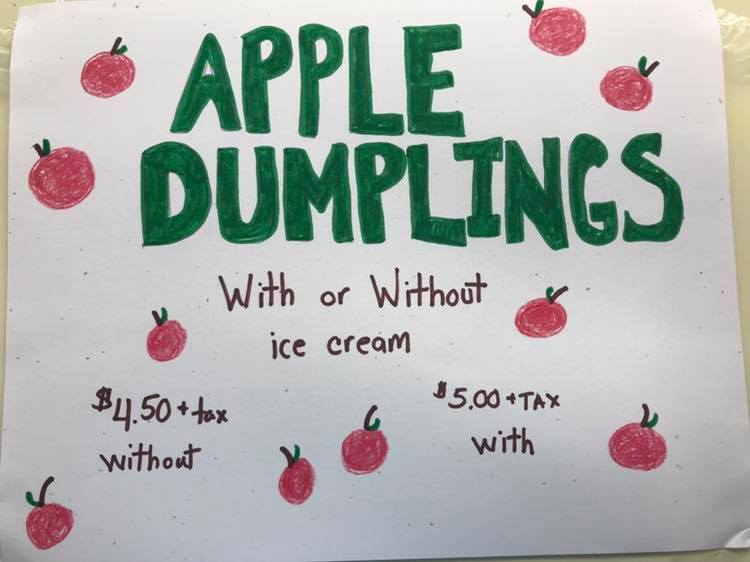 APPLE
DUMPLINGS
With or Without
ice cream
$4.50 + tax
without
$5.00 + TAX
with